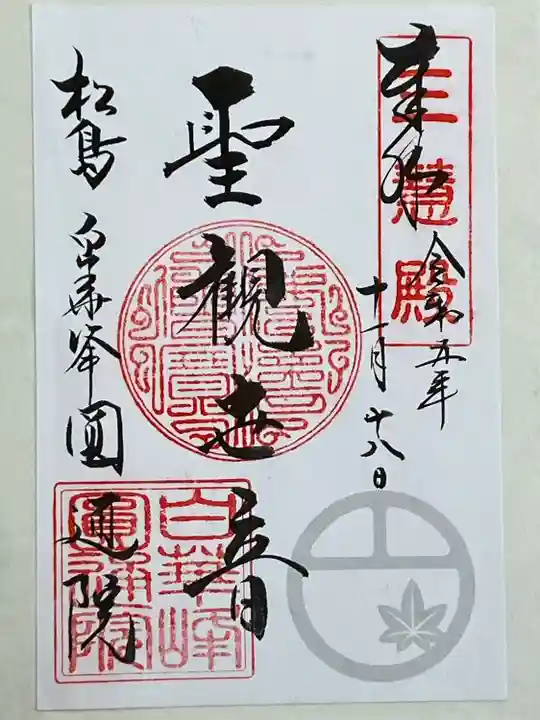 三慧殿
奉拝
令和五年
十一月十八日
聖観世音
松島 白華峯圓通院
白華峰
圓通院